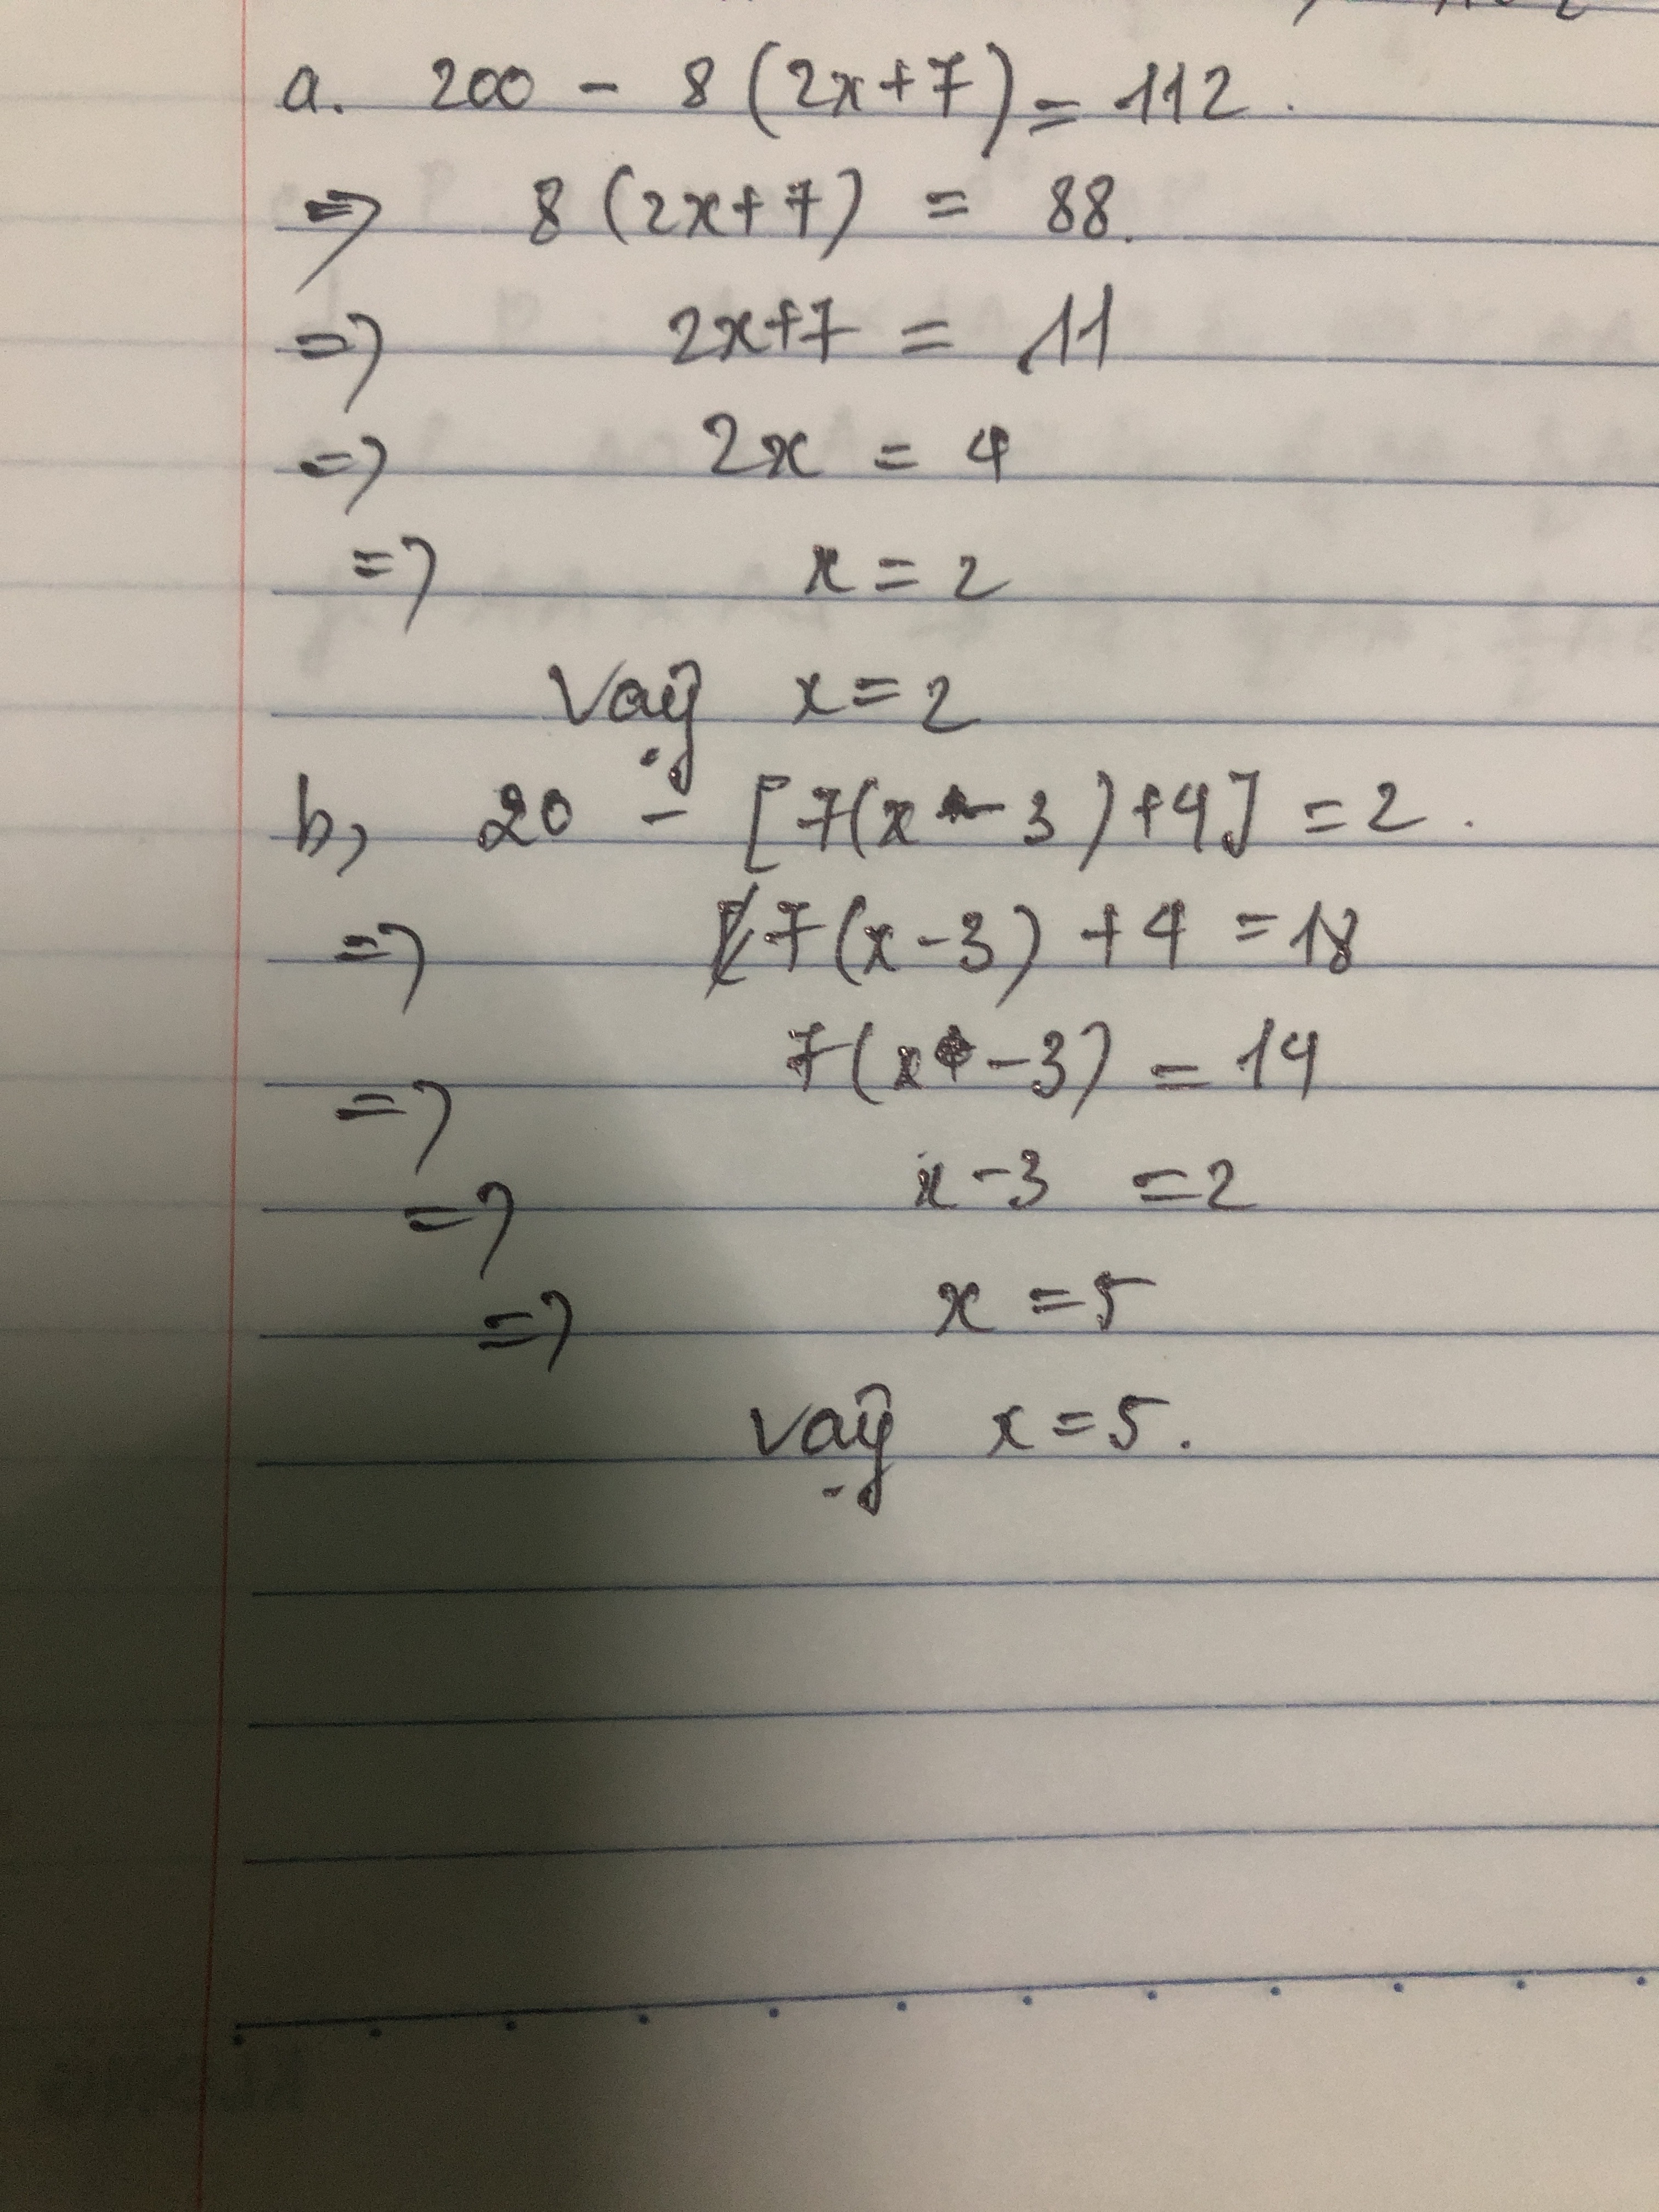 a. 200 - 8 (2x+7) = 112.
=> 8 (2x+7) = 88.
=> 2x+7 = 11
=> 2x = 4
=> x = 2
Vậy x = 2
b, 20 - [7(x - 3) + 4] = 2.
=> 7(x - 3) + 4 = 18
=> 7(x - 3) = 14
=> x - 3 = 2
=> x = 5
Vậy x = 5.